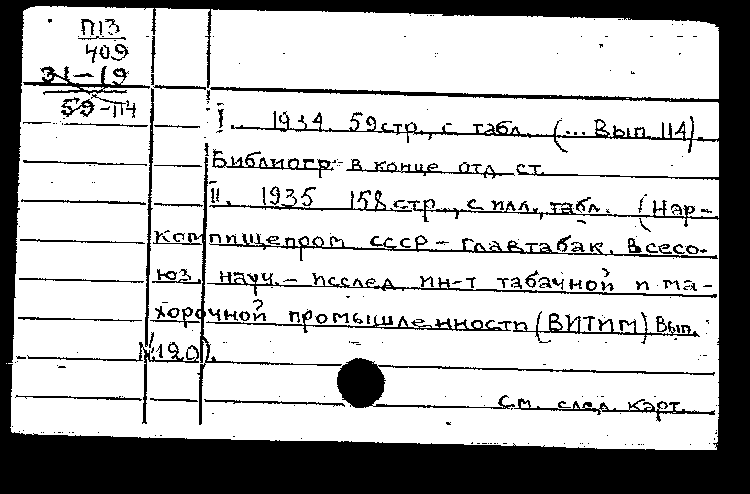 П13
409
31-19
59-П4
I. 1934. 59 стр., с табл. (... Вып. 114).
Библиогр. в конце отд. ст.
II. 1935 158 стр., с илл., табл. (Нар-
компищепром СССР - Главтабак. Всесо-
юз. науч.-исслед. ин-т табачной и ма-
хорочной промышленности (ВИТИМ) Вып.
№120).
См. след. карт.